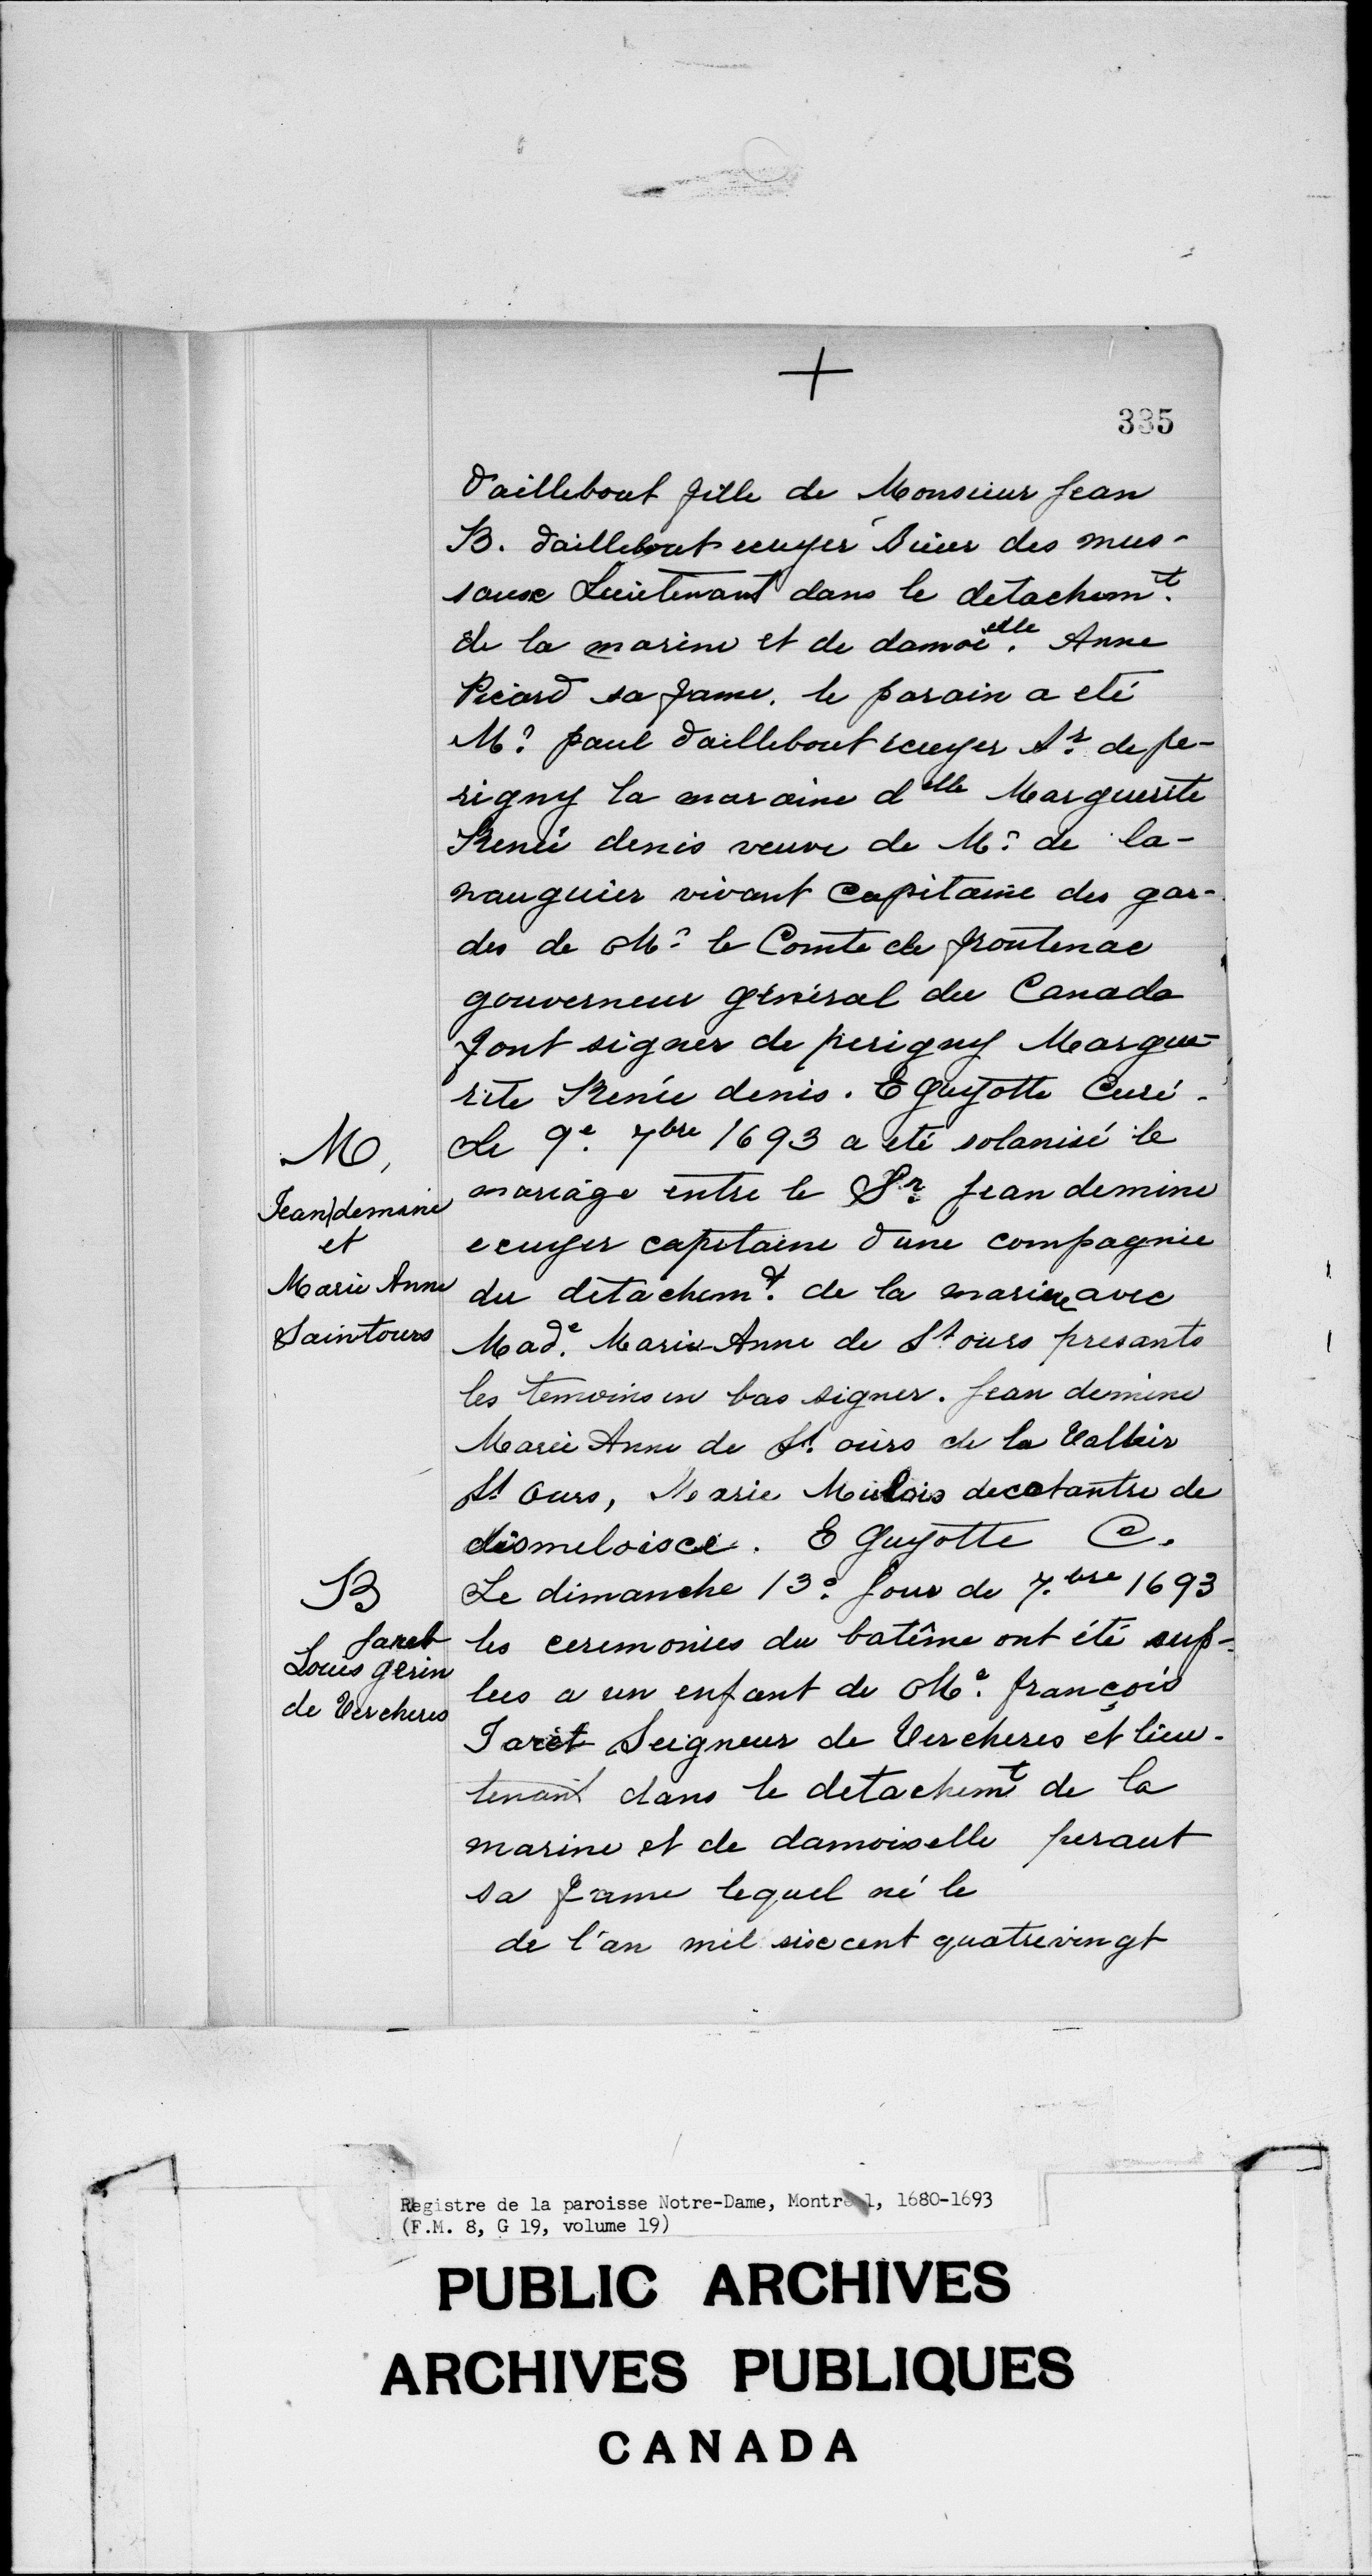 335
d'aillebout fille de Monsieur Jean
B. daillebout ecuyer Sieur des mus-
saux Lieutenant dans le detachemt.
de la marine et de damoielle. Anne
Picard sa fame. le parain a eté
Mr. paul daillebout ecuyer Sr. de pe-
rigny la maraine delle Marguerite
Renée denis veuve de Mr. de la-
nauguier vivant Capitaine des gar-
des de Mr. le Comte de frontenac
gouverneur général du Canada
font signer de perigny Margue-
rite Renée denis. E Guyotte Curé.
M.
Jean demine
et
Marie Anne
Saintours
Le 9e. 7bre 1693 a eté solanisé le
mariage entre le Sr. Jean demine
ecuyer capitaine d'une compagnie
du détachemt. de la marine avec
Made. Marie Anne de St ours presants
les temoins en bas signer. Jean demine
Marie Anne de St. ours de la
St Ours, Marie Mulois de
E Guyotte C.
B
Jaret
Louis gerin
de Vercheres
Le dimanche 13e. Jour de 7.bre 1693
les ceremonies du batême ont été sup-
lees a un enfant de Mr. françois
Jaret Seigneur de Vercheres et lieu-
tenant dans le detachemt de la
marine et de damoiselle peraut
sa fame lequel né le
de l'an mil sixcent quatrevingt
Registre de la paroisse Notre-Dame, Montréal, 1680-1693
(F.M. 8, G 19, volume 19)
PUBLIC ARCHIVES
ARCHIVES PUBLIQUES
CANADA